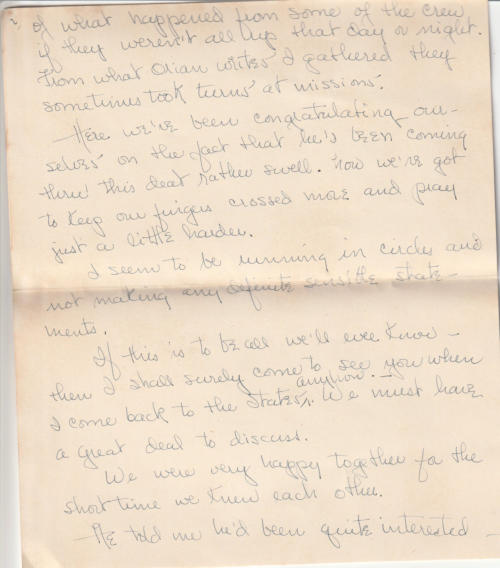 2
of what happened from some of the crew
if they weren't all up that day or night.
From what Orian writes I gathered they
sometimes took turns at missions.
Here we've been congratulating our-
selves on the fact that he's been coming
thru this deal rather swell. Now we've got
to keep our fingers crossed more and pray
just a little harder.
I seem to be running in circles and
not making any definite sensible state-
ments.
If this is to be all we'll ever know -
then I shall surely come to see you when
anyhow. -
I come back to the States. We must have
a great deal to discuss.
We were very happy together for the
short time we knew each other.
He told me he'd been quite interested -